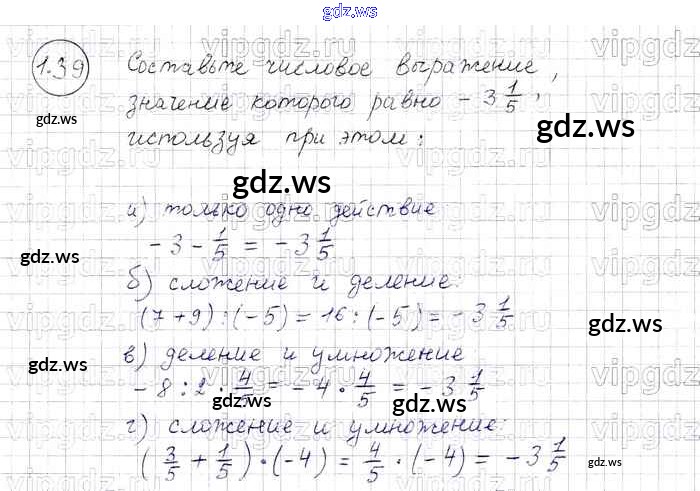 gdz.ws
1.39
Составьте числовое выражение,
значение которого равно -3 1/5,
используя при этом:
а) только одно действие
-3 - 1/5 = -3 1/5
б) сложение и деление:
(7+9):(-5) = 16:(-5) = -3 1/5
в) деление и умножение
-8 : 2 · 4/5 = -4 · 4/5 = -3 1/5
г) сложение и умножение:
(3/5 + 1/5) · (-4) = 4/5 · (-4) = -3 1/5
gdz.ws
gdz.ws
gdz.ws
gdz.ws
gdz.ws
gdz.ws
gdz.ws
gdz.ws
gdz.ws
gdz.ws